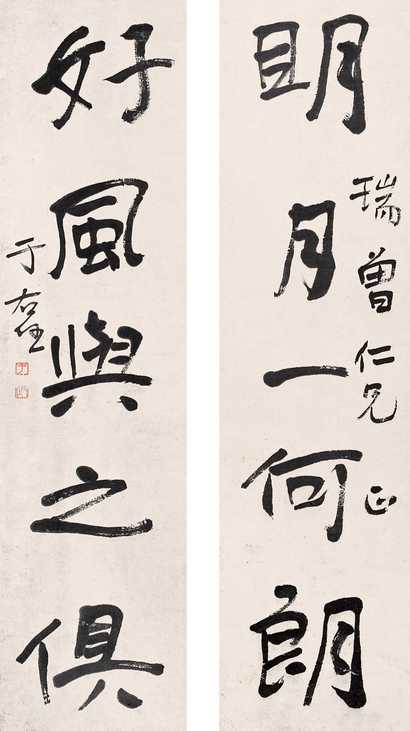 明月一何朗
瑞曾仁兄 正
好風與之俱
于右任